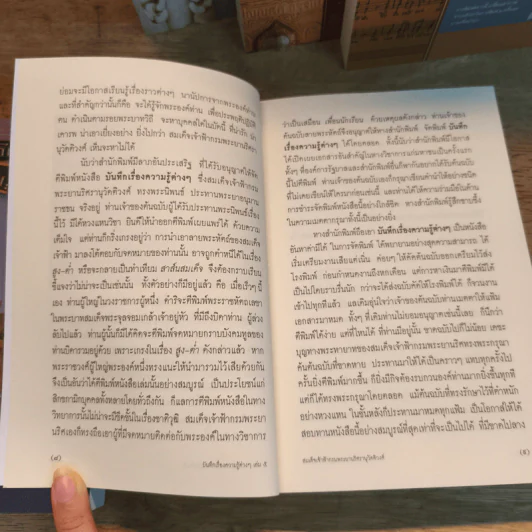 ย่อมจะมีโอกาสเรียนรู้เรื่องราวต่างๆ นานัปการจากพระองค์ท่าน
และที่สำคัญกว่านั้นก็คือ จะได้รู้จักพระองค์ท่าน เพื่อประพฤติปฏิบัติ
ตน ดำเนินตามรอยพระบาทวิถี จะหาบุคคลใดในปัถพี ที่น่ารัก น่า
เคารพ น่าเอาเยี่ยงอย่าง ยิ่งไปกว่า สมเด็จเจ้าฟ้ากรมพระยานริศรา
นุวัดติวงศ์ เห็นจะหาไม่ได้
นับว่าสำนักพิมพ์มีลาภอันประเสริฐ ที่ได้รับอนุญาตให้จัด
ตีพิมพ์หนังสือ บันทึกเรื่องความรู้ต่างๆ ซึ่งสมเด็จเจ้าฟ้ากรม
พระยานริศรานุวัดติวงศ์ ทรงพระนิพนธ์ ประทานพระยาอนุมาน
ราชธน จริงอยู่ ท่านเจ้าของต้นฉบับผู้ได้รับประทานพระนิพนธ์เรื่อง
นี้ไว้ มิได้หวงแหนวิชา ยินดีให้นำออกตีพิมพ์เผยแพร่ได้ ด้วยความ
เต็มใจ แต่ท่านก็กริ่งเกรงอยู่ว่า การนำเอาลายพระหัตถ์ของสมเด็จ
เจ้าฟ้า มาลงโต้ตอบกับจดหมายของท่านนั้น อาจถูกตำหนิได้ในเรื่อง
สูง-ต่ำ หรือจะกลายเป็นทำเทียม สาส์นสมเด็จ จึงต้องกราบเรียน
ชี้แจงว่าไม่น่าจะเป็นเช่นนั้น ทั้งตัวอย่างก็มีอยู่แล้ว คือ เมื่อเร็วๆ นี้
เอง ท่านผู้ใหญ่ในวงราชการผู้หนึ่ง ดำริจะตีพิมพ์พระราชหัตถเลขา
ในพระบาทสมเด็จพระจุลจอมเกล้าเจ้าอยู่หัว ที่มีถึงบิดาท่าน ผู้ล่วง
ลับไปแล้ว ท่านผู้นั้นก็มิได้คิดจะตีพิมพ์จดหมายกราบบังคมทูลของ
ท่านบิดารวมอยู่ด้วย เพราะเกรงในเรื่อง สูง-ต่ำ ดังกล่าวแล้ว หาก
พระราชวงศ์ผู้ใหญ่พระองค์หนึ่งทรงแนะให้นำมารวมไว้เสียด้วยกัน
จึงเป็นอันว่าได้ตีพิมพ์หนังสือเล่มนั้นอย่างสมบูรณ์ เป็นประโยชน์แก่
สิกขกามิกบุคคลทั้งหลายโดยทั่วถึงกัน ก็และการตีพิมพ์หนังสือในทาง
วิทยาการนั้นไม่น่าจะมีขีดขั้นในเรื่องชาติวุฒิ สมเด็จเจ้าฟ้ากรมพระยา
นริศเองก็ทรงถือเอาผู้ที่มีจดหมายติดต่อกับพระองค์ในทางวิชาการ
บันทึกเรื่องความรู้ต่างๆ เล่ม ๕
ว่าเป็นเสมือน เพื่อนนักเรียน ด้วยเหตุผลดังกล่าว ท่านเจ้าของ
ต้นฉบับลายพระหัตถ์จึงอนุญาตให้ทางสำนักพิมพ์ จัดพิมพ์ บันทึก
เรื่องความรู้ต่างๆ ได้โดยตลอด ทั้งนี้นับว่าสำนักพิมพ์ได้มีโอกาส
ได้เปิดเผยเอกสารอันสำคัญในทางวิชาการแก่มหาชนเป็นครั้งแรก
ไปตีพิมพ์ ท่านเจ้าของต้นฉบับเองก็กรุณาเขียนคำนำให้อย่างชนิด
ที่ไม่เคยเขียนให้ใครมาก่อนเช่นนี้ และท่านได้ให้ความร่วมมือในด้าน
ในความเมตตากรุณาทั้งนี้เป็นอย่างยิ่ง
ทางสำนักพิมพ์ถือเอา บันทึกเรื่องความรู้ต่างๆ เป็นหนังสือ
อันหาค่ามิได้ ในการจัดพิมพ์ ได้พยายามอย่างสุดความสามารถ ได้
โรงพิมพ์ ก่อนกำหนดงานถึงหกเดือน แต่การหาได้เป็น
เอกสารมาหมด ทั้งๆ ที่เดิมท่านไม่ยอมอนุญาตเช่นนี้เลย ก็นึกว่า
บุญญูทางพระทายาทของสมเด็จเจ้าฟ้ากรมพระยานริศทรงพระกรุณา
ค้นต้นฉบับที่ขาดหาย ประทานมาให้ได้เป็นคราวๆ แทบทุกครั้งไป
ครั้นยิ่งตีพิมพ์มากขึ้น ก็ยิ่งมีกิจต้องรบกวนองค์ท่านมากยิ่งขึ้นทุกที
แต่ก็ได้ทรงพระกรุณาโดยตลอด แม้ต้นฉบับที่ทรงรักษาไว้ที่ตำหนัก
อย่างหวงแหน ในชั้นหลังก็ประทานมาหมดทุกแฟ้ม เป็นโอกาสให้ได้
สอบทานหนังสือนี้อย่างสมบูรณ์ที่สุดเท่าที่จะเป็นไปได้ ที่มีขาดไปลาง
สมเด็จเจ้าฟ้ากรมพระยานริศรานุวัดติวงศ์